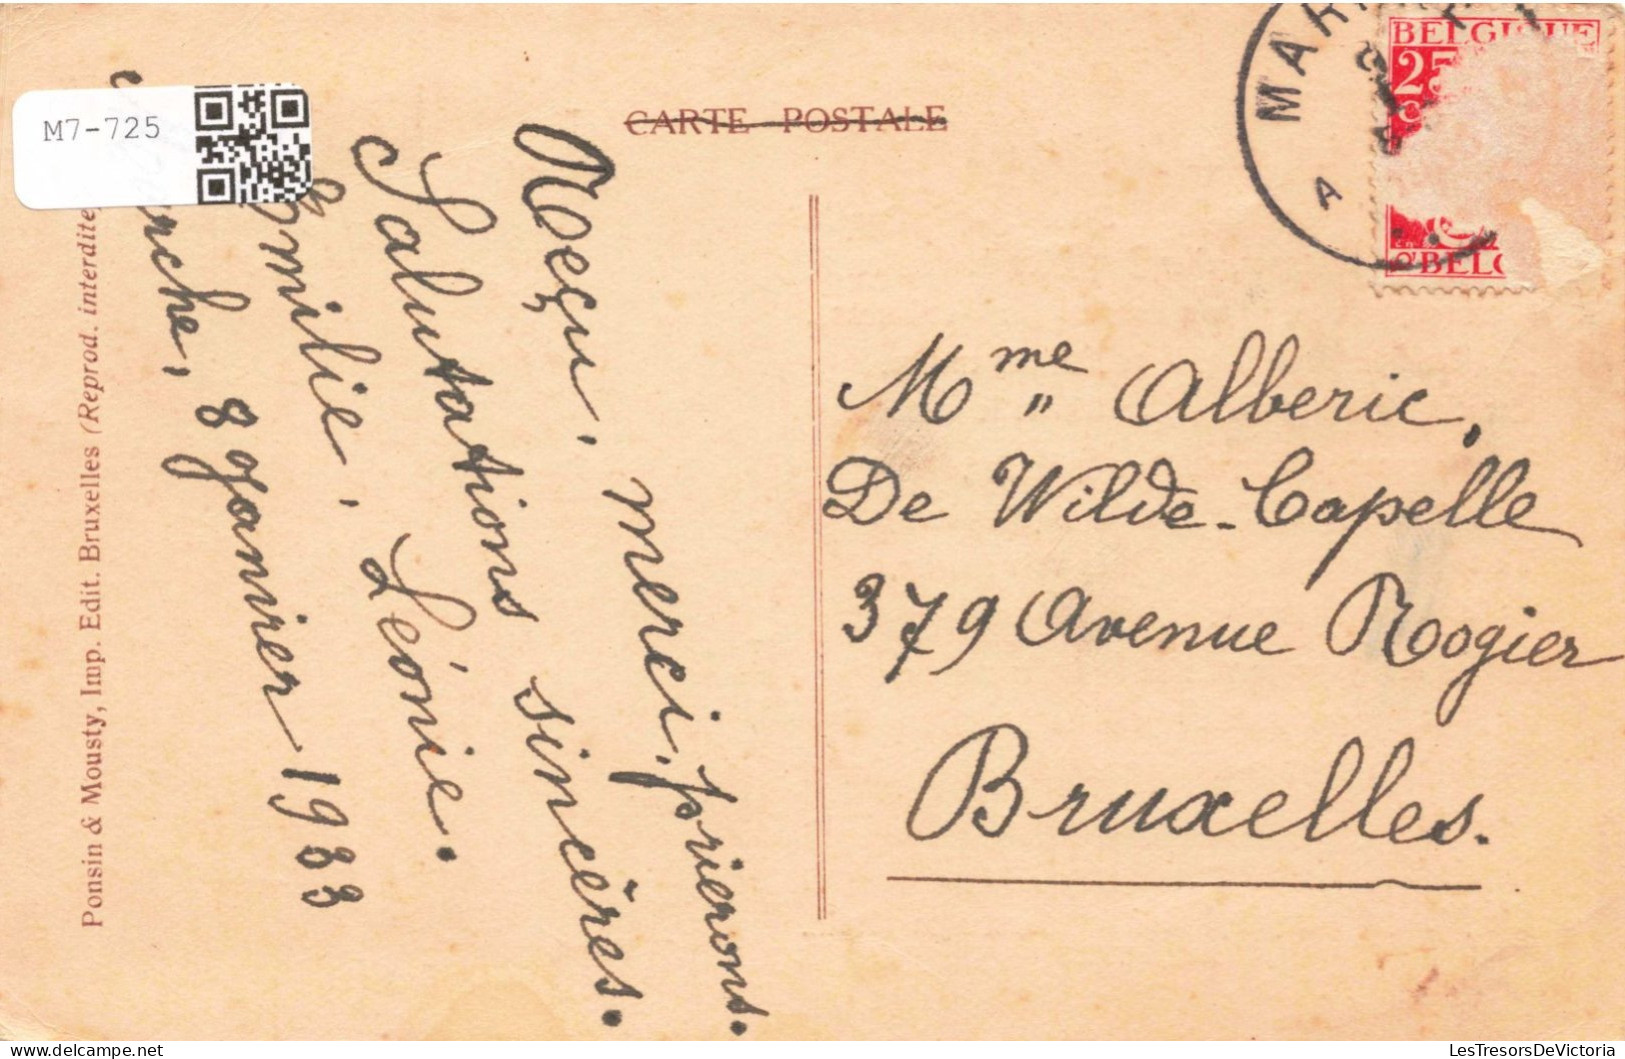 M7-725
CARTE POSTALE
Reçu, merci, prierons.
Salutations sincères.
Emilie, Léonie.
rche, 8 ganvier 1933
Ponsin & Mousty, Imp. Edit. Bruxelles (Reprod. interdite)
MAR
A
BELGIQUE
25
BELG
Mme Alberic,
De Wilde-Capelle
379 Avenue Rogier
Bruxelles.
LesTresorsDeVictoria